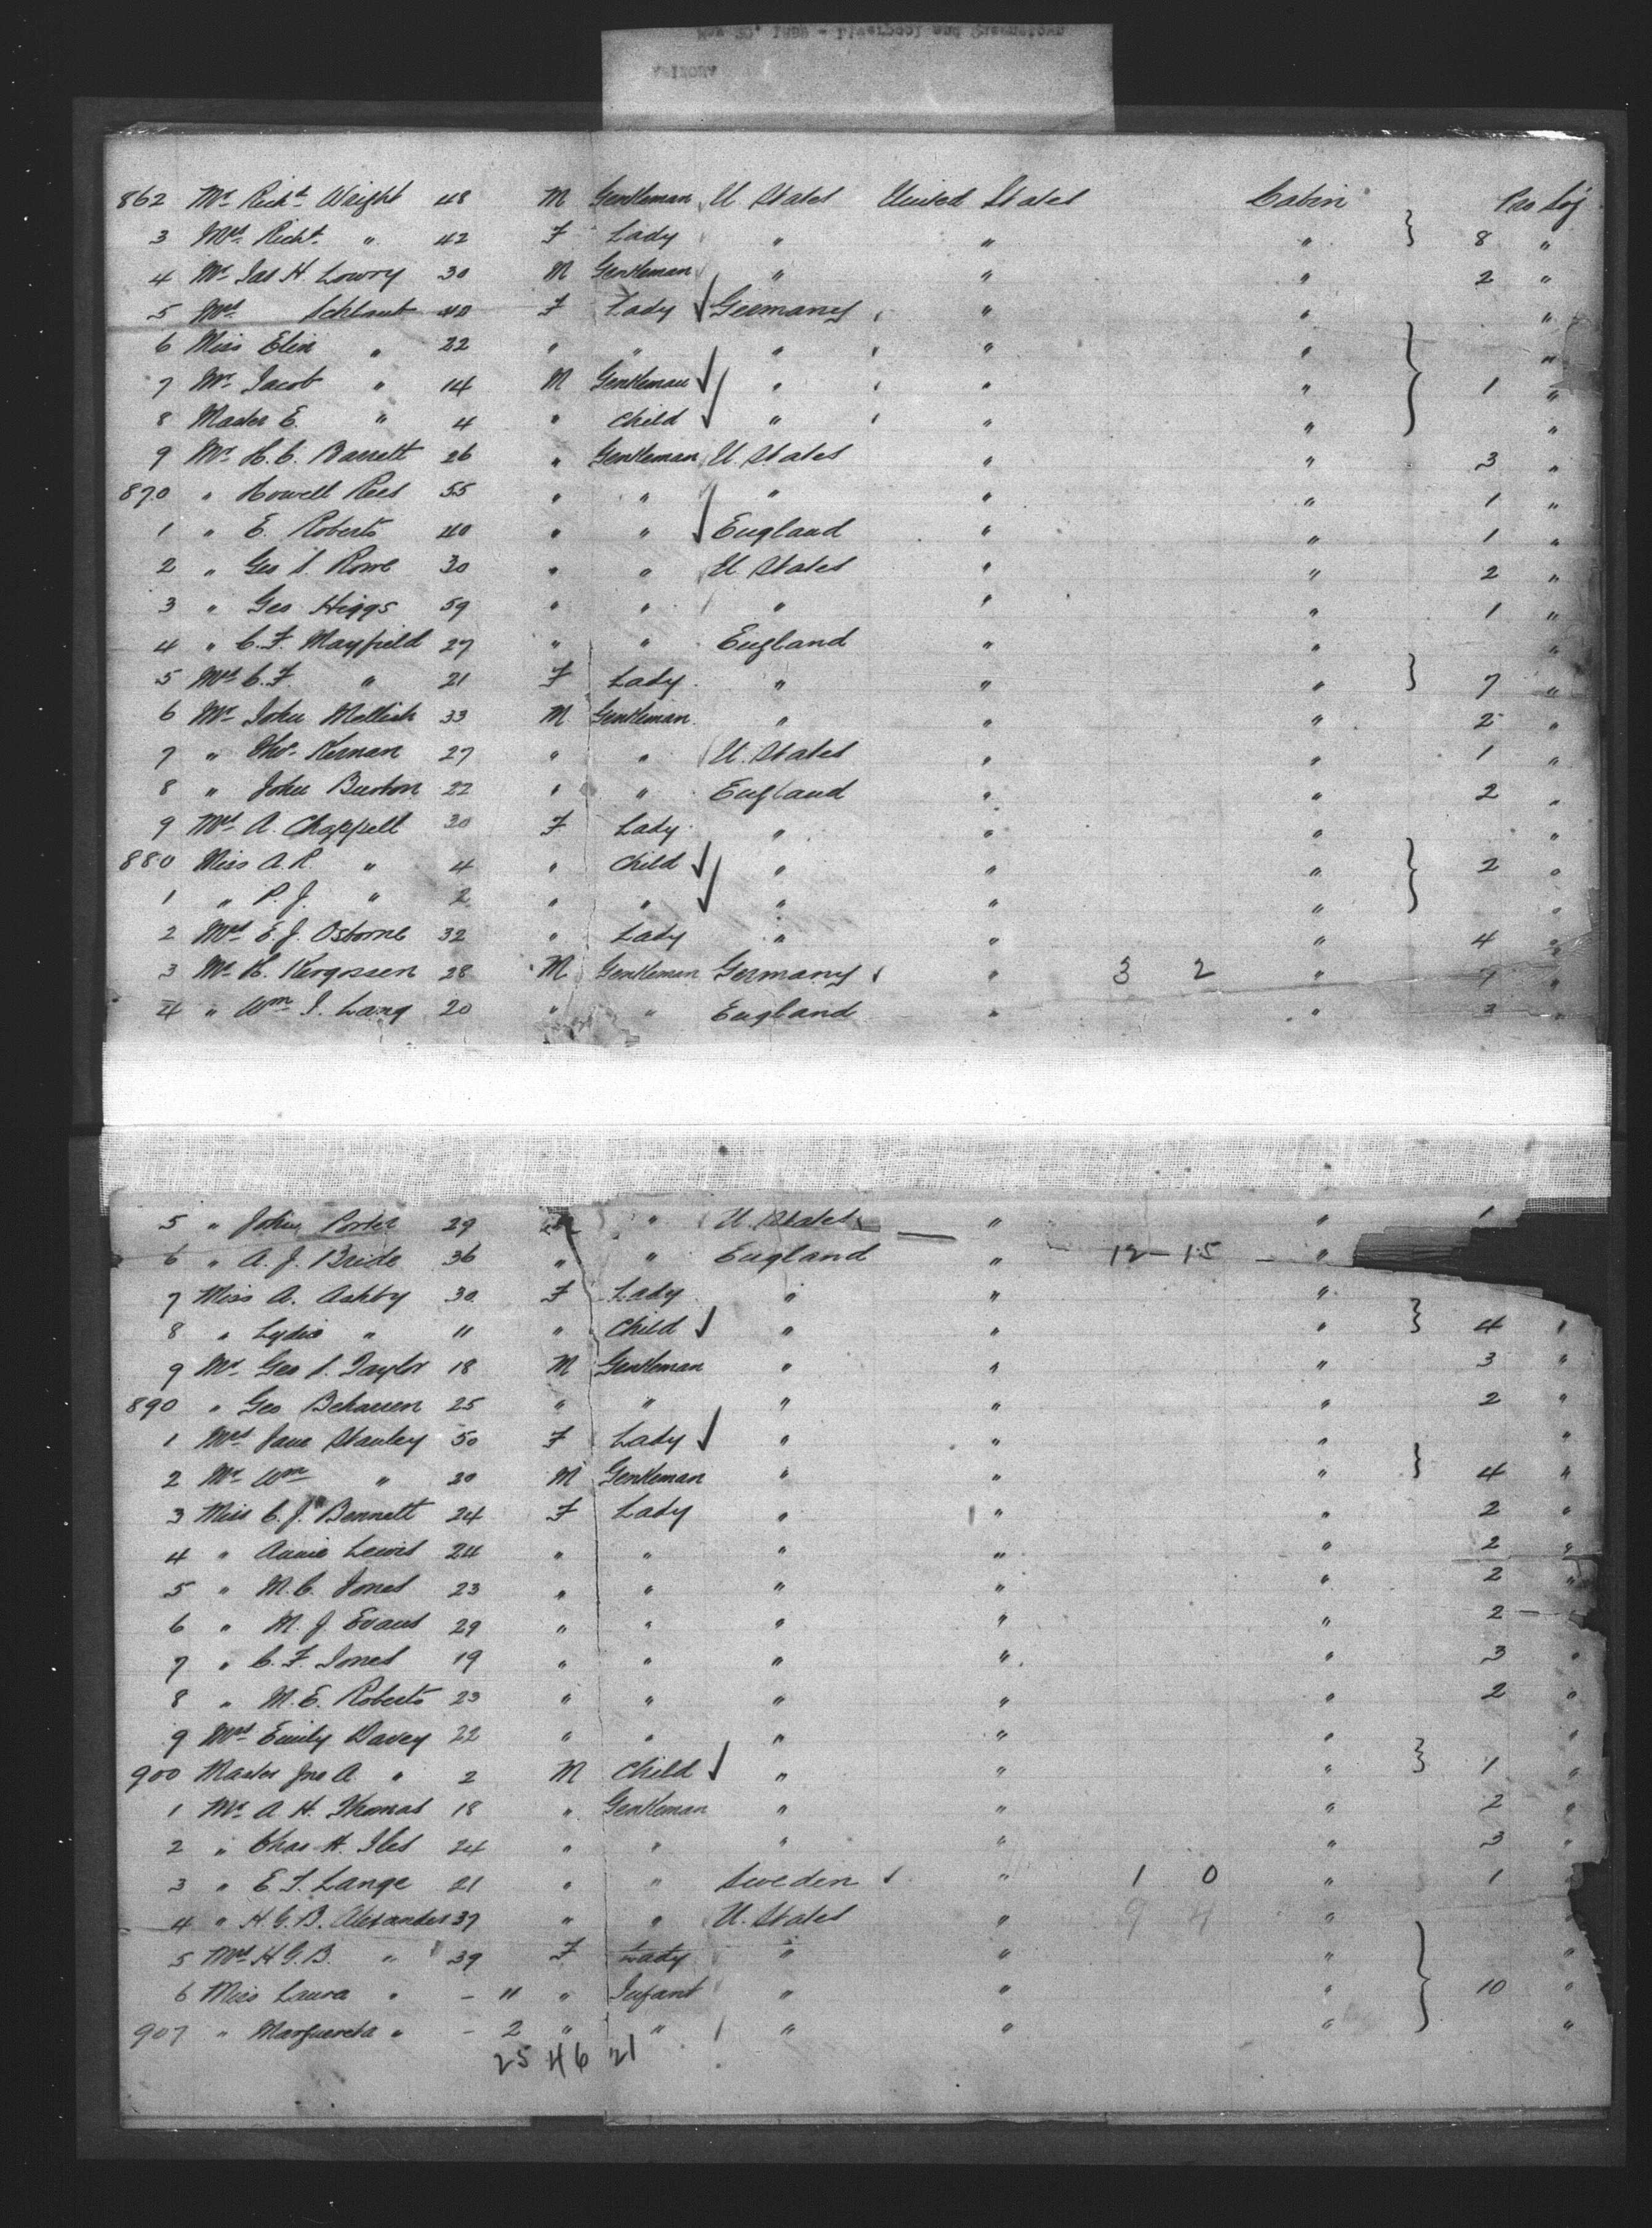 862 Mr Richt Wright 48 M Gentleman U States United States Cabin
3 Mrs Richt " 42 F Lady " " " 8 "
4 Mr Jas H. Lowry 30 M Gentleman " " " 2 "
5 Mrs Schlaut 40 F Lady Germany " " "
6 Miss Elin " 22 " " " " " "
7 Mr Jacob " 14 M Gentleman " " " 1 "
8 Master E. " 4 " Child " " " "
9 Mr H. C. Barrett 26 " Gentleman U. States " " 3 "
870 " Howell Rees 55 " " " " " 1 "
1 " E. Roberts 40 " " England " " 1 "
2 " Geo S. Rowe 30 " " U. States " " 2 "
3 " Geo Higgs 59 " " " " " 1 "
4 " C. F. Mayfield 27 " " England " " "
5 Mrs C. F. " 21 F Lady " " " 7 "
6 Mr John Mellish 33 M Gentleman " " " 2 "
7 " Thos Kernan 27 " " U. States " " 1 "
8 " John Burton 22 " " England " " 2 "
9 Mrs A. Chappell 30 F Lady " " " "
880 Miss A. R. " 4 " Child " " " 2 "
1 " P. J. " 2 " " " " " "
2 Mrs E. J. Osborne 32 " Lady " " " 4 "
3 Mr H. 28 M Gentleman Germany " 3 2 " 1 "
4 " Wm J. Lang 20 " " England " " 3 "
5 " John Porter 29 " " U. States " " 1
6 " A. J. Bride 36 " " England " 12-15 "
7 Miss A. Ashby 30 F Lady " " "
8 " Lydia " 11 " Child " " " 4 "
9 Mr Geo S. Taylor 18 M Gentleman " " " 3 "
890 " Geo 25 " " " " " 2 "
1 Mrs Jane Stanley 50 F Lady " " " "
2 Mr Wm " 20 M Gentleman " " " 4 "
3 Miss C. J. Bennett 24 F Lady " " " 2 "
4 " Annie Lewis 24 " " " " " 2 "
5 " M. C. Jones 23 " " " " " 2 "
6 " M. J. Evans 29 " " " " " 2
7 " C. F. Jones 19 " " " " " 3 "
8 " M. E. Roberts 23 " " " " " 2 "
9 Mrs Emily Davey 22 " " " " " "
900 Master Jno A. " 2 M Child " " " 1 "
1 Mr A H. Thomas 18 " Gentleman " " " 2 "
2 " Chas H. Iles 24 " " " " " 3 "
3 " E. T. Lange 21 " " Sweden " 1 0 " 1 "
4 " H. G. B. Alexander 37 " " U. States " 9 4 " "
5 Mrs H G. B. " 39 F Lady " " " "
6 Miss Laura " - 11 " Infant " " " 10 "
907 " Marguereta " - 2 " " " " " "
25 46 21